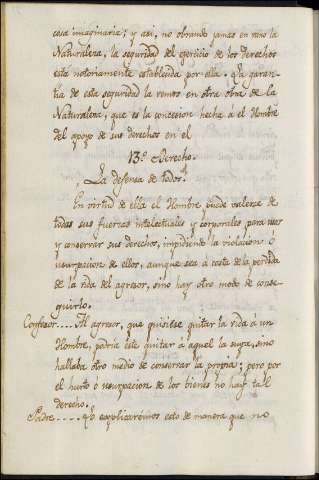 cosa imaginaria; y asi, no obrando jamas en vano la
Naturaleza, la seguridad del egercicio de los derechos
esta notoriamente establecida por ella. La garan-
tia de esta seguridad la vemos en otra obra de la
Naturaleza, que es la concesion hecha á el Hombre
del apoyo de sus derechos en el
13.º Derecho.
La defensa de todos.
En virtud de ella el Hombre puede valerse de
todas sus fuerzas intelectuales y corporales para usar
y conservar sus derechos, impidiendo la violacion ó
usurpacion de ellos, aunque sea á costa de la perdida
de la vida del agresor, sino hay otro modo de conse-
guirlo.
Confesor.... Al agresor, que quisiese quitar la vida á un
Hombre, podria este quitar á aquel la suya, sino
hallaba otro medio de conservar la propia; pero por
el hurto ó usurpacion de los bienes no hay tal
derecho.
Padre..... Yo explicarémos esto de manera que no